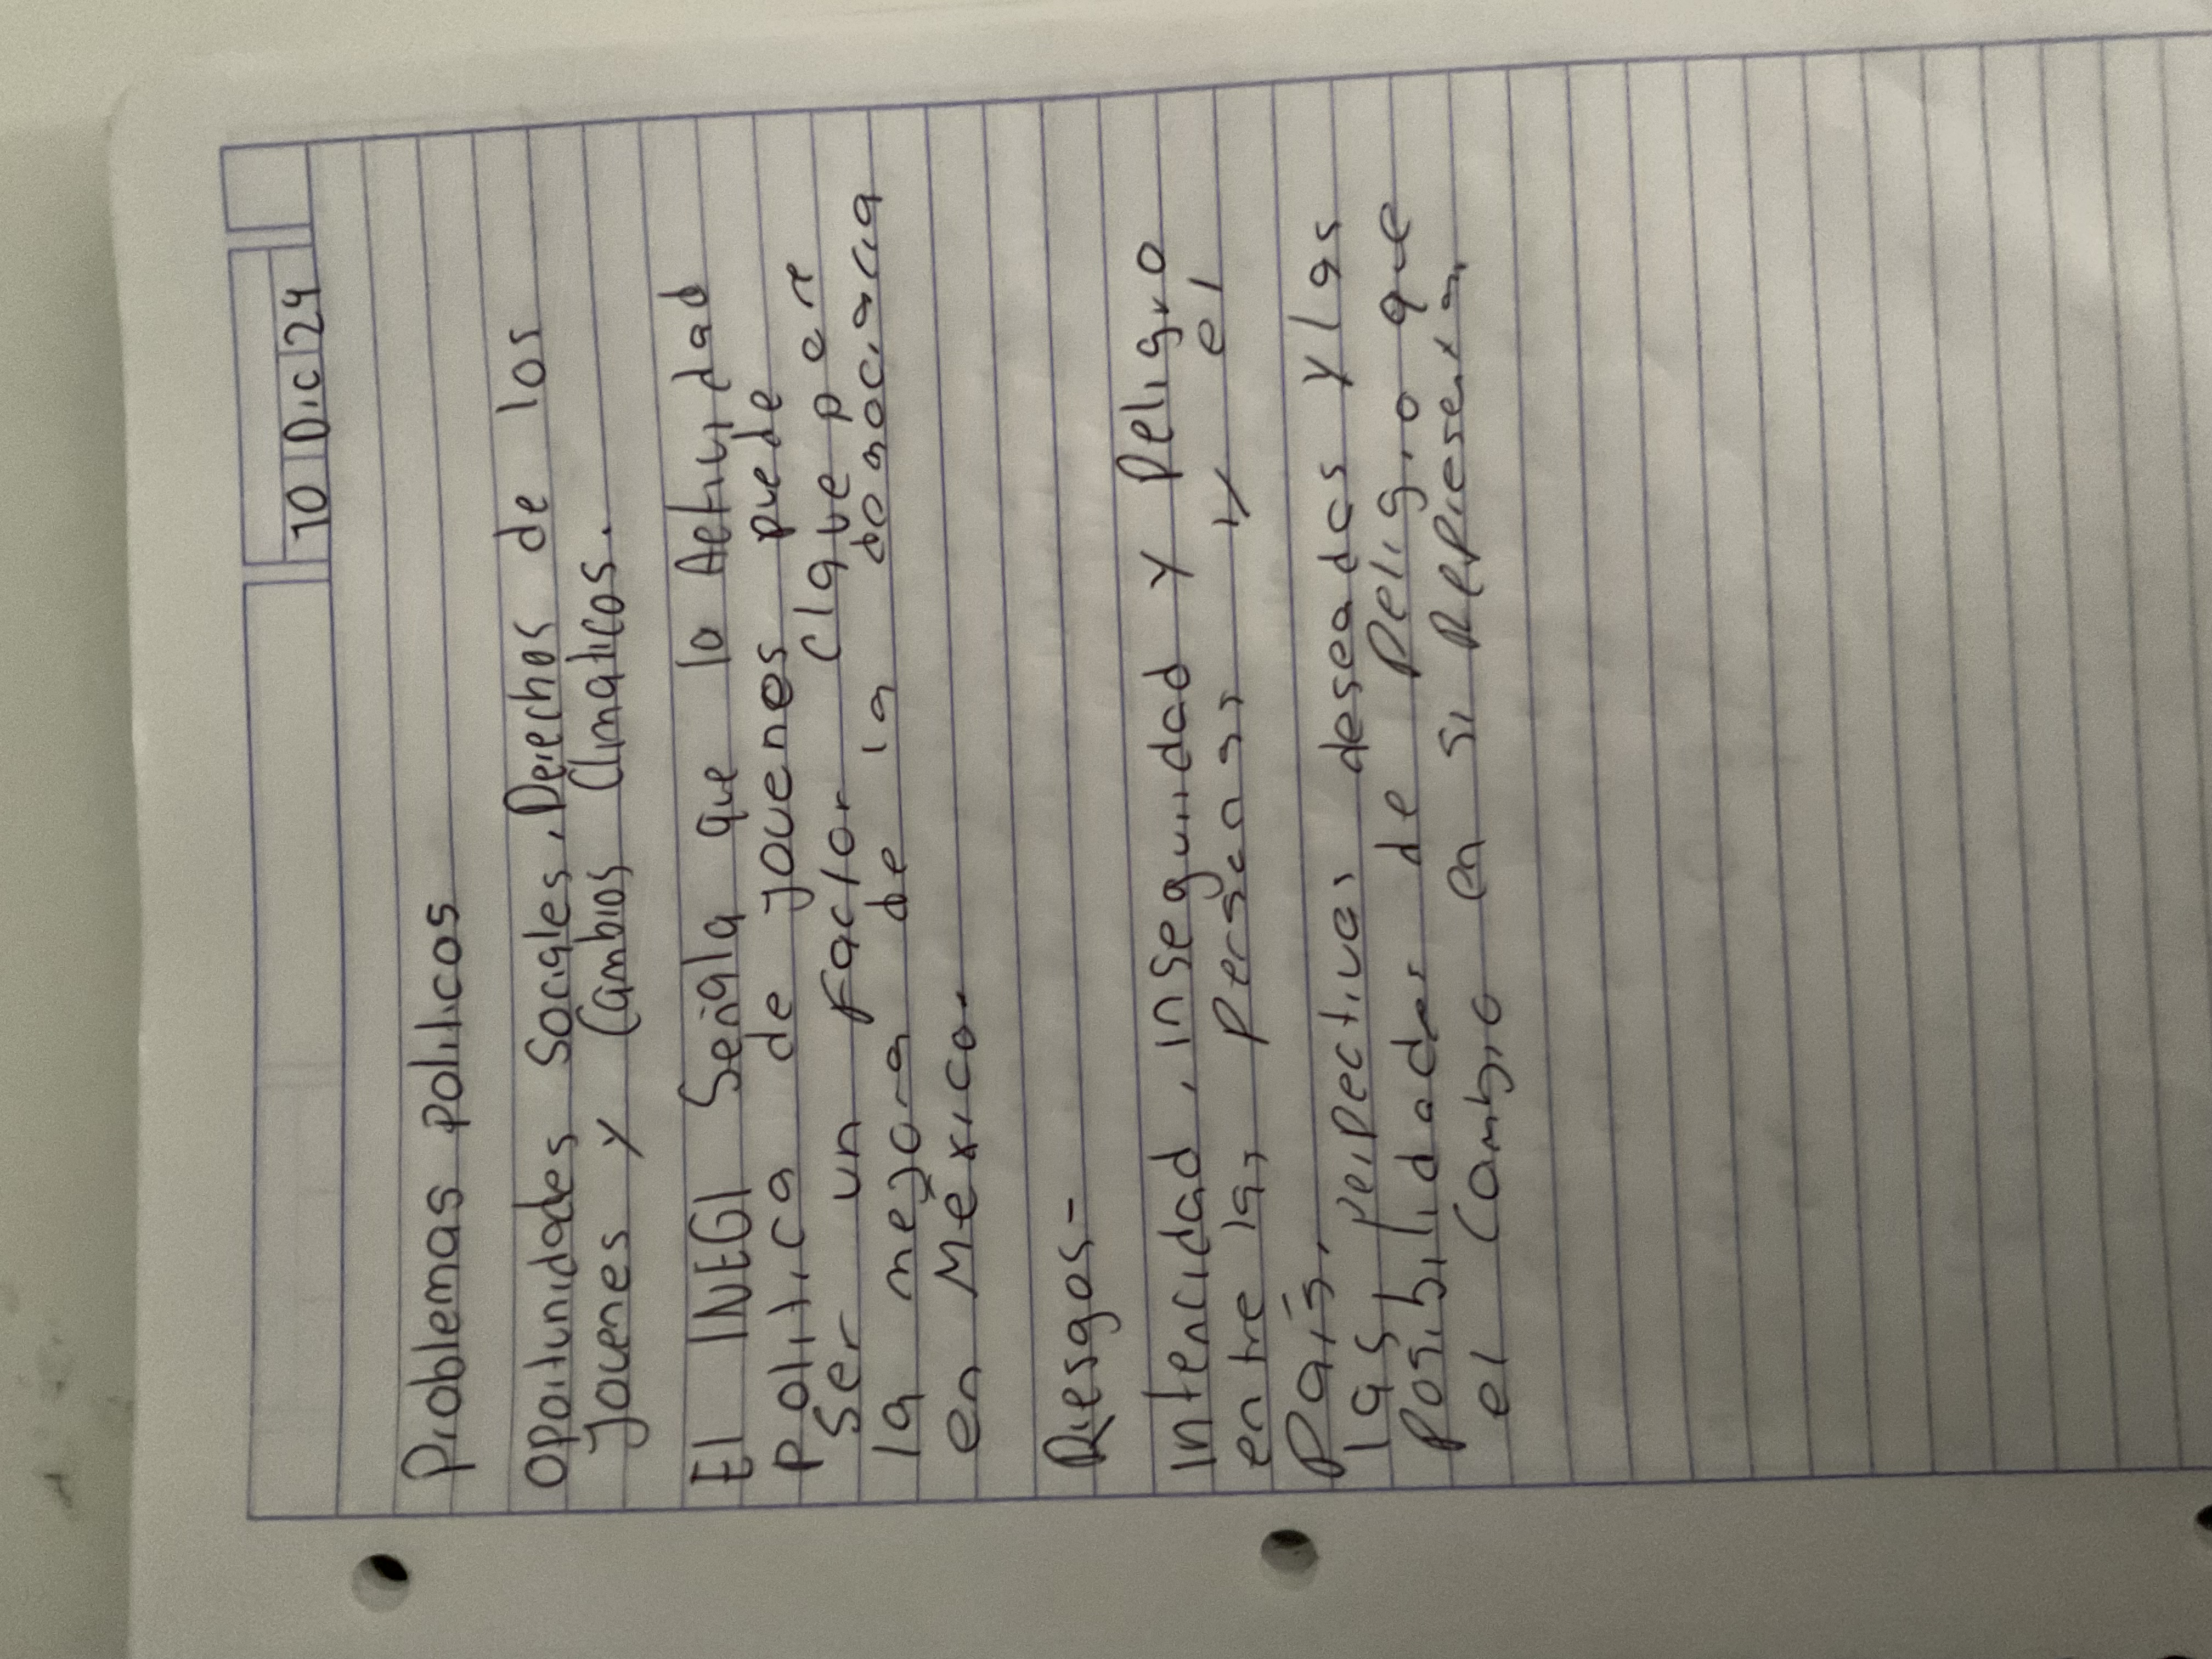 10 Dic 24
Problemas políticos
Oportunidades Sociales, Derechos de los
jovenes y Cambios Climaticos.
El INEGI Señala que la Actividad
política de jovenes puede
Ser un Factor clave
la mejora de la
en México.
Riesgos-
Intencidad, inseguridad y Peligro
entre las personas y el
País.
las perspectivas deseadas y las
Posibilidades de Peligro que
el Cambio en si Representa.